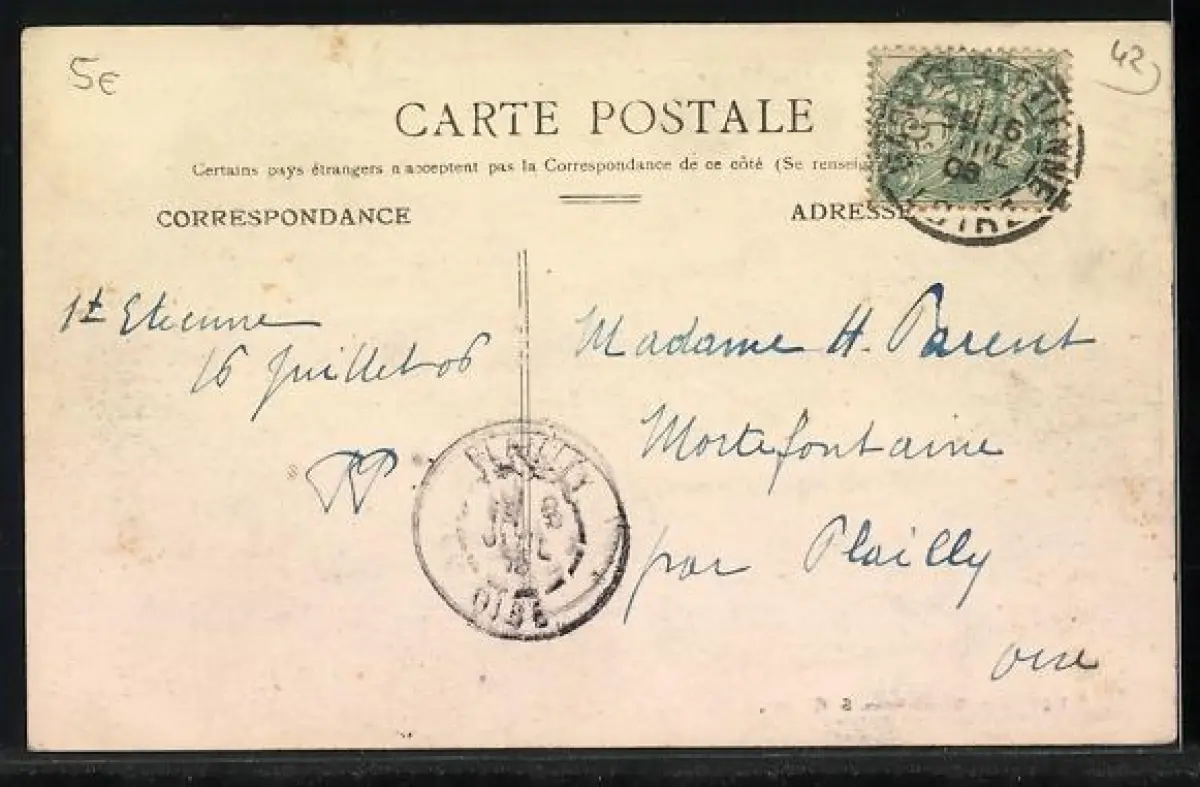 5€
42
CARTE POSTALE
Certains pays étrangers n'acceptent pas la Correspondance de ce côté (Se rensei
CORRESPONDANCE
ADRESSE
16
JUIL
06
LOIRE
St Etienne
16 Juillet 06
Madame H. Parent
Mortefontaine
par Plailly
Oise
PLAILLY
JUIL
OISE